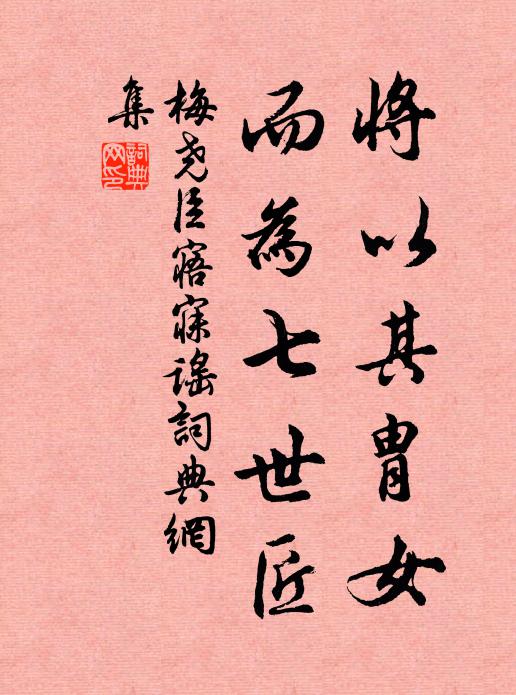 將以其胄女
而為七世匠
梅堯臣寤寐謠詞典網
集
詞典網印